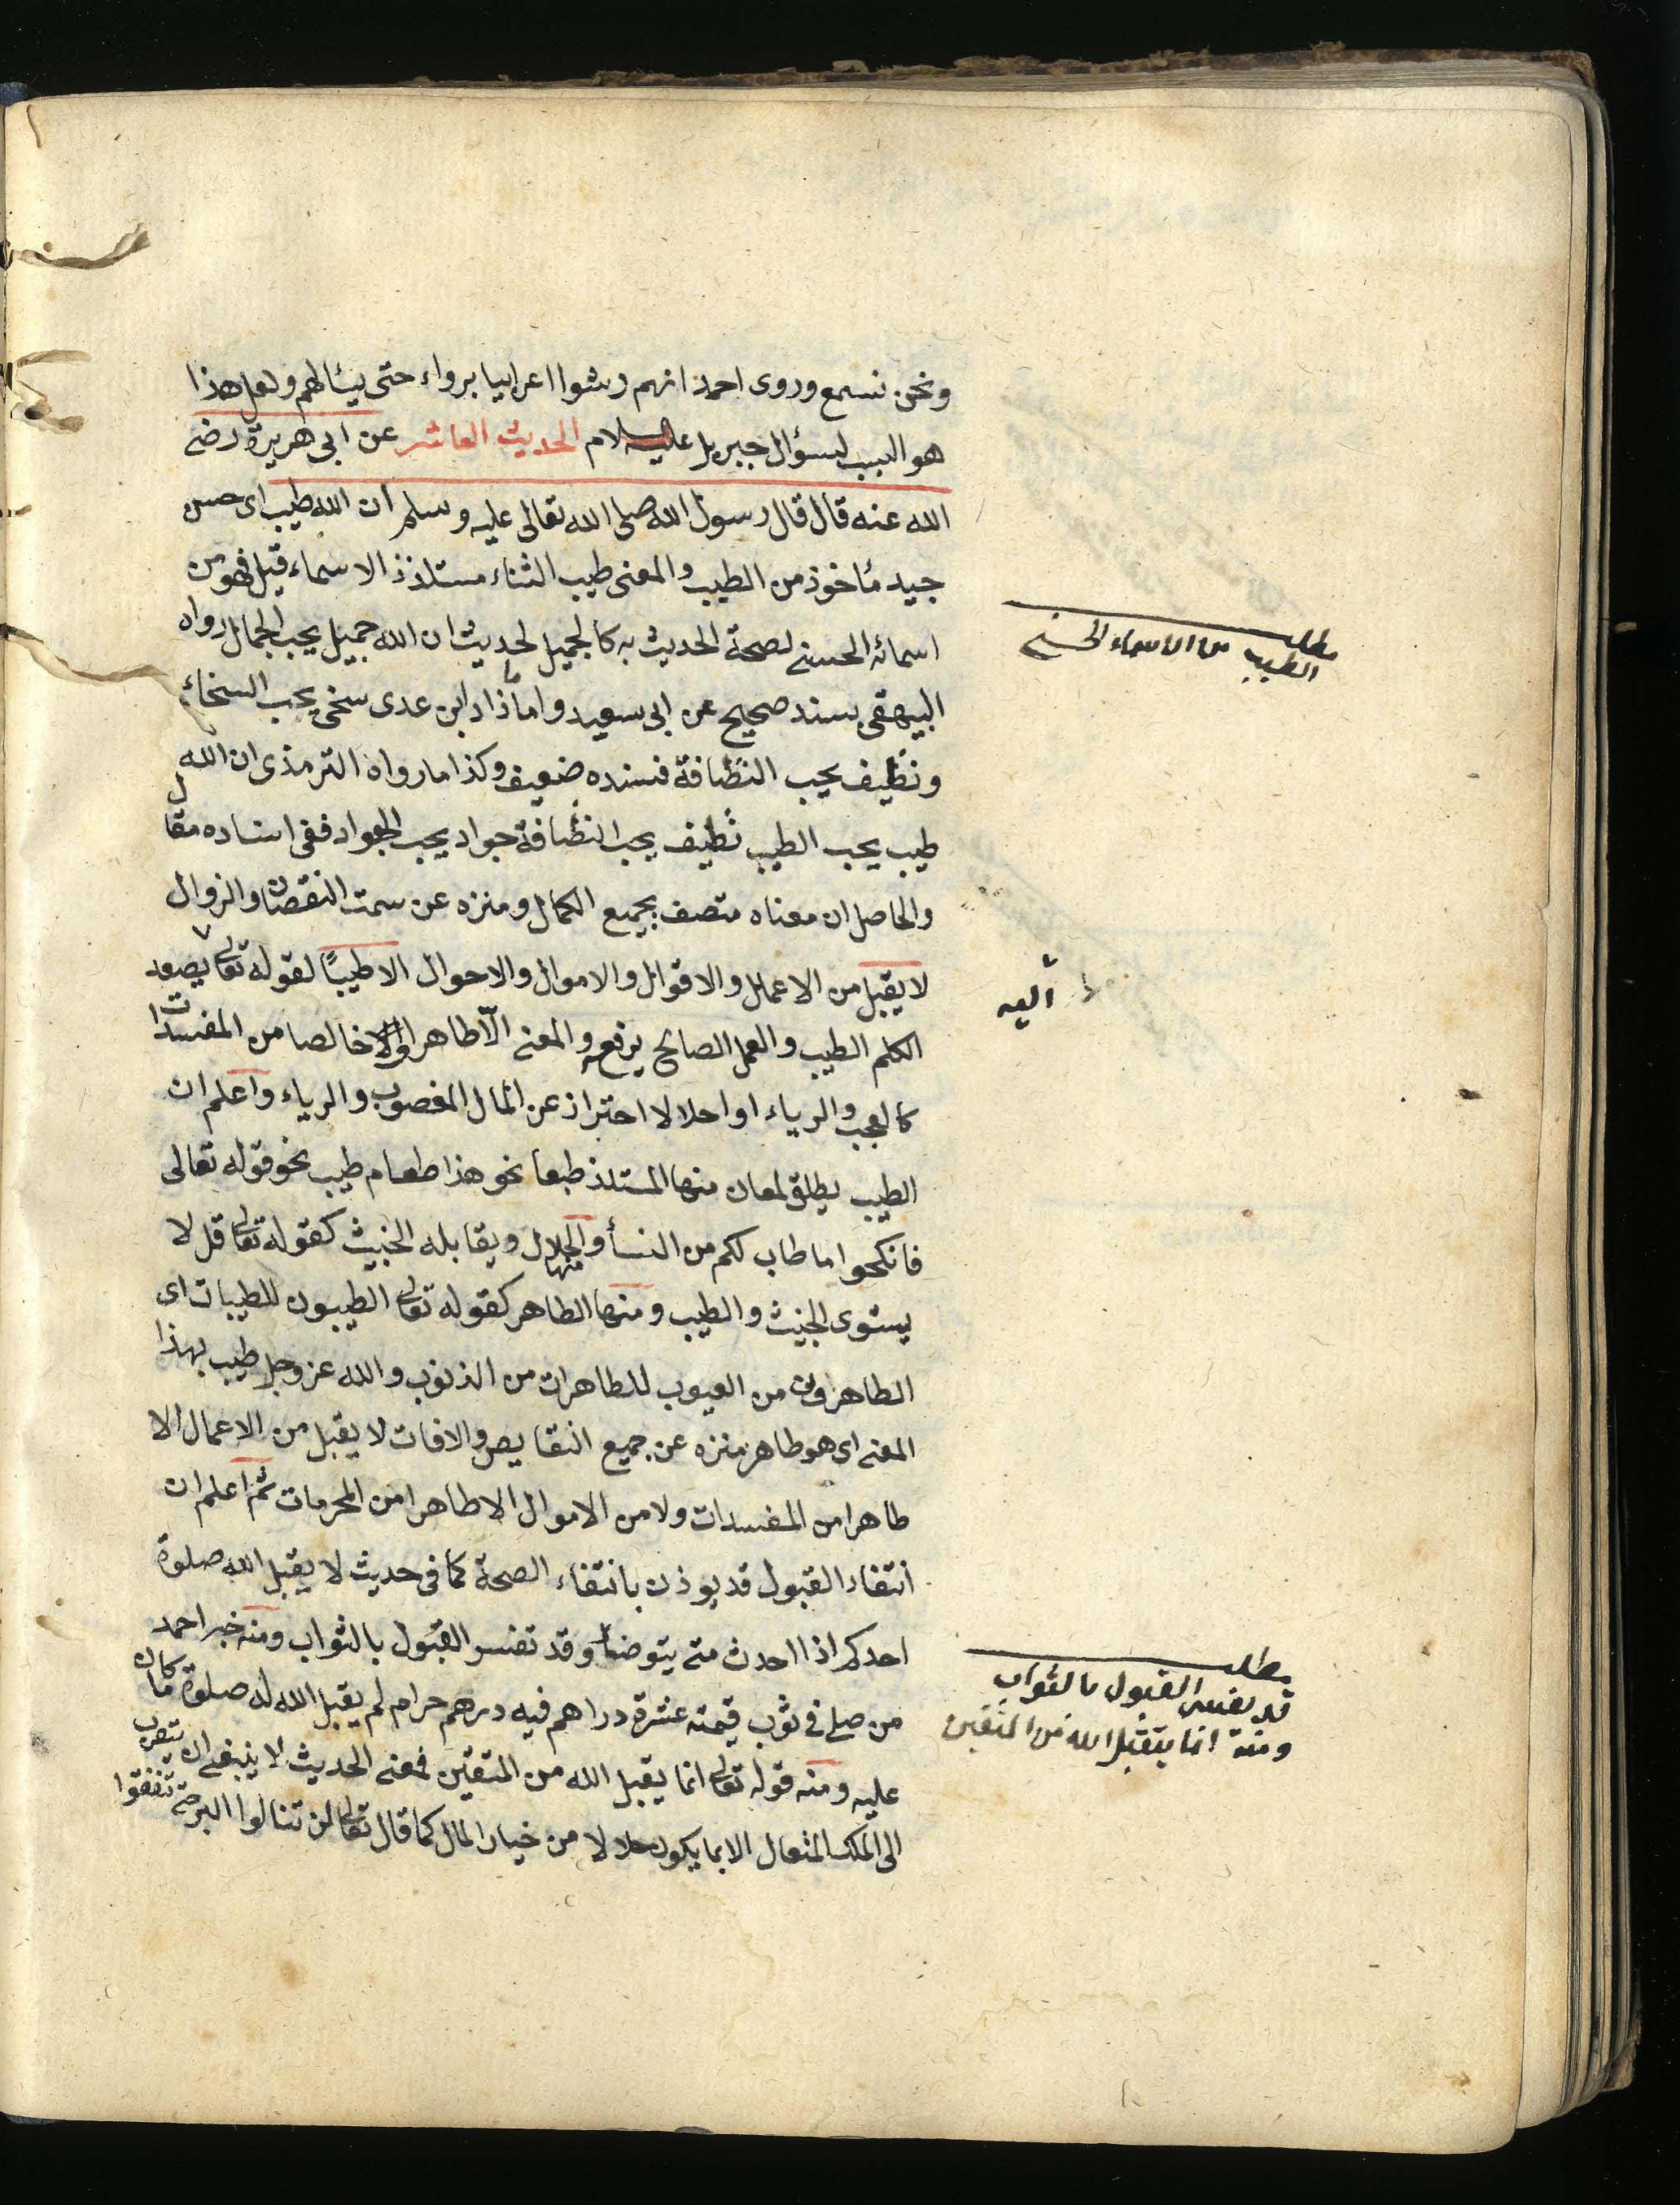 ونحن نسمع وروى احمد انهم رشوا اعرابيا برداء حتى يسألهم ولعل هذا
هو السبب لسؤال جبريل عليه السلام الحديث العاشر عن ابى هريرة رضى
الله عنه قال قال رسول الله صلى الله تعالى عليه وسلم ان الله طيب اى حسن
جيد مأخوذ من الطيب والمعنى طيب الثناء مستلذذ الاسماء قيل فهو من
اسمائه الحسنى لصحة الحديث به كالجميل لحديث ان الله جميل يحب الجمال رواه
البيهقى بسند صحيح عن ابى سعيد واما ما زاد ابن عدى سخى يحب السخاء
ونظيف يحب النظافة فسنده ضعيف وكذا ما رواه الترمذى ان الله
طيب يحب الطيب نظيف يحب النظافة جواد يحب الجواد ففى اسناده مقال
والحاصل ان معناه متصف بجميع الكمال ومنزه عن سمت النقصان والزوال
لا يقبل من الاعمال والاقوال والاموال والاحوال الا طيبا لقوله تعالى يصعد
الكلم الطيب والعمل الصالح يرفعه والمعنى الا طاهرا خالصا من المفسدات
كالعجب والرياء او احلالا احتراز عن المال المغصوب والرياء واعلم ان
الطيب يطلق لمعان منها المستلذ طبعا نحو هذا طعام طيب نحو قوله تعالى
فانكحوا ما طاب لكم من النسأ ومنها الحلال ويقابله الخبيث كقوله تعالى قل لا
يستوى الخبيث والطيب ومنها الطاهر كقوله تعالى الطيبون للطيبات اى
الطاهرون من العيوب للطاهرات من الذنوب والله عز وجل طيب بهذا
المعنى اى هو طاهر منزه عن جميع النقايص والافات لا يقبل من الاعمال الا
طاهرا من المفسدات ولا من الاموال الا طاهرا من المحرمات ثم اعلم ان
انتفاء القبول قد يوذن بانتفاء الصحة كما فى حديث لا يقبل الله صلوة
احدكم اذا احدث حتى يتوضأ وقد تفسر القبول بالثواب ومنه خبر احمد
من صلى فى ثوب قيمته عشرة دراهم فيه درهم حرام لم يقبل الله له صلوة ما كان
عليه ومنه قوله تعالى انما يقبل الله من المتقين فمعنى الحديث لا ينبغى ان يتقرب
الى الملك المتعال الا بما يكون حلالا من خيار المال كما قال تعالى لن تنالوا البر حتى تنفقوا
مطلب
الطيب من الاسماء الحسنى
اليه
مطلب
قد يفسر القبول بالثواب
ومنه انما يتقبل الله من المتقين